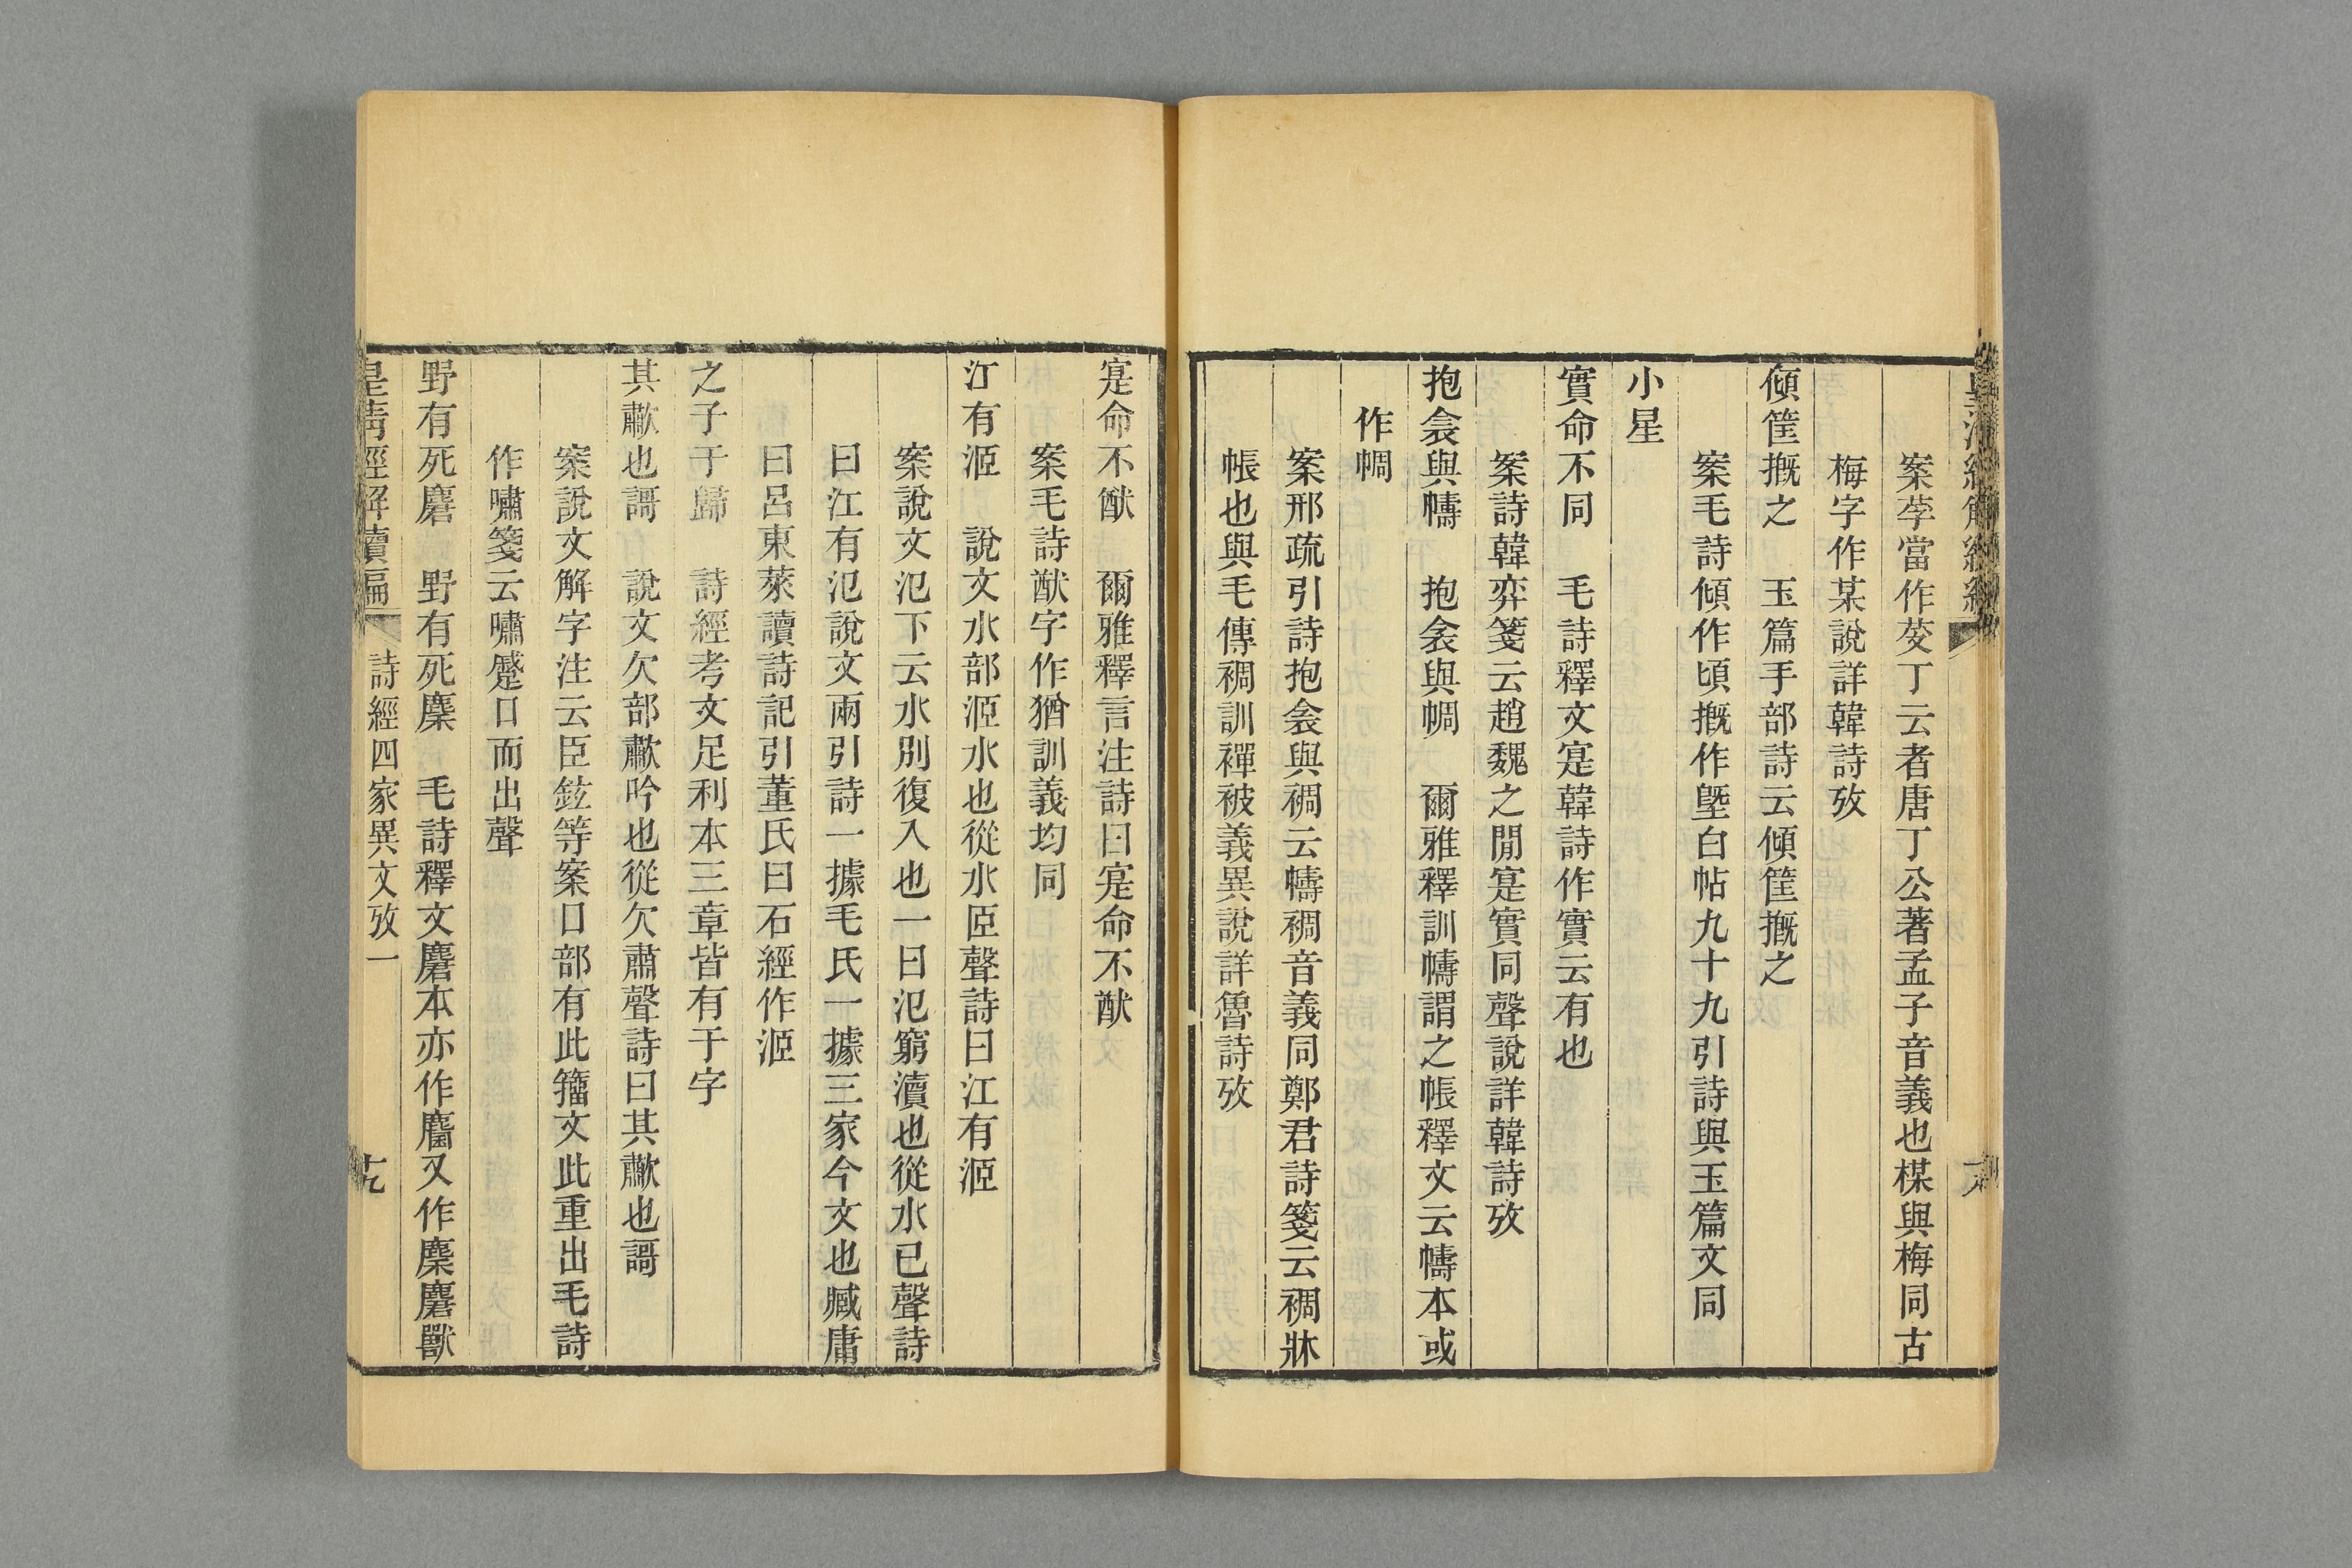 案莩當作芆丁云者唐丁公著孟子音義也楳與梅同古
梅字作某說詳韓詩攷
傾筐摡之　玉篇手部詩云傾筐摡之
案毛詩傾作頃摡作塈白帖九十九引詩與玉篇文同
小星
實命不同　毛詩釋文寔韓詩作實云有也
案詩韓弈箋云趙魏之閒寔實同聲說詳韓詩攷
抱衾與幬　抱衾與㡏　爾雅釋訓幬謂之帳釋文云幬本或
作㡏
案邢疏引詩抱衾與裯云幬裯音義同鄭君詩箋云裯牀
帳也與毛傳裯訓襌被義異說詳魯詩攷
寔命不猷　爾雅釋言注詩曰寔命不猷
案毛詩猷字作猶訓義均同
江有洍　說文水部洍水也從水𦣞聲詩曰江有洍
案說文氾下云水別復入也一曰氾窮瀆也從水已聲詩
曰江有氾說文兩引詩一據毛氏一據三家今文也臧庸
曰呂東萊讀詩記引董氏曰石經作洍
之子于歸　詩經考文足利本三章皆有于字
其歗也謌　說文欠部歗吟也從欠肅聲詩曰其歗也謌
案說文解字注云臣鉉等案口部有此籀文此重出毛詩
作嘯箋云嘯蹙口而出聲
野有死麏　野有死麇　毛詩釋文麏本亦作麕又作麇麏獸
皇清經解續編　詩經四家異文攷一